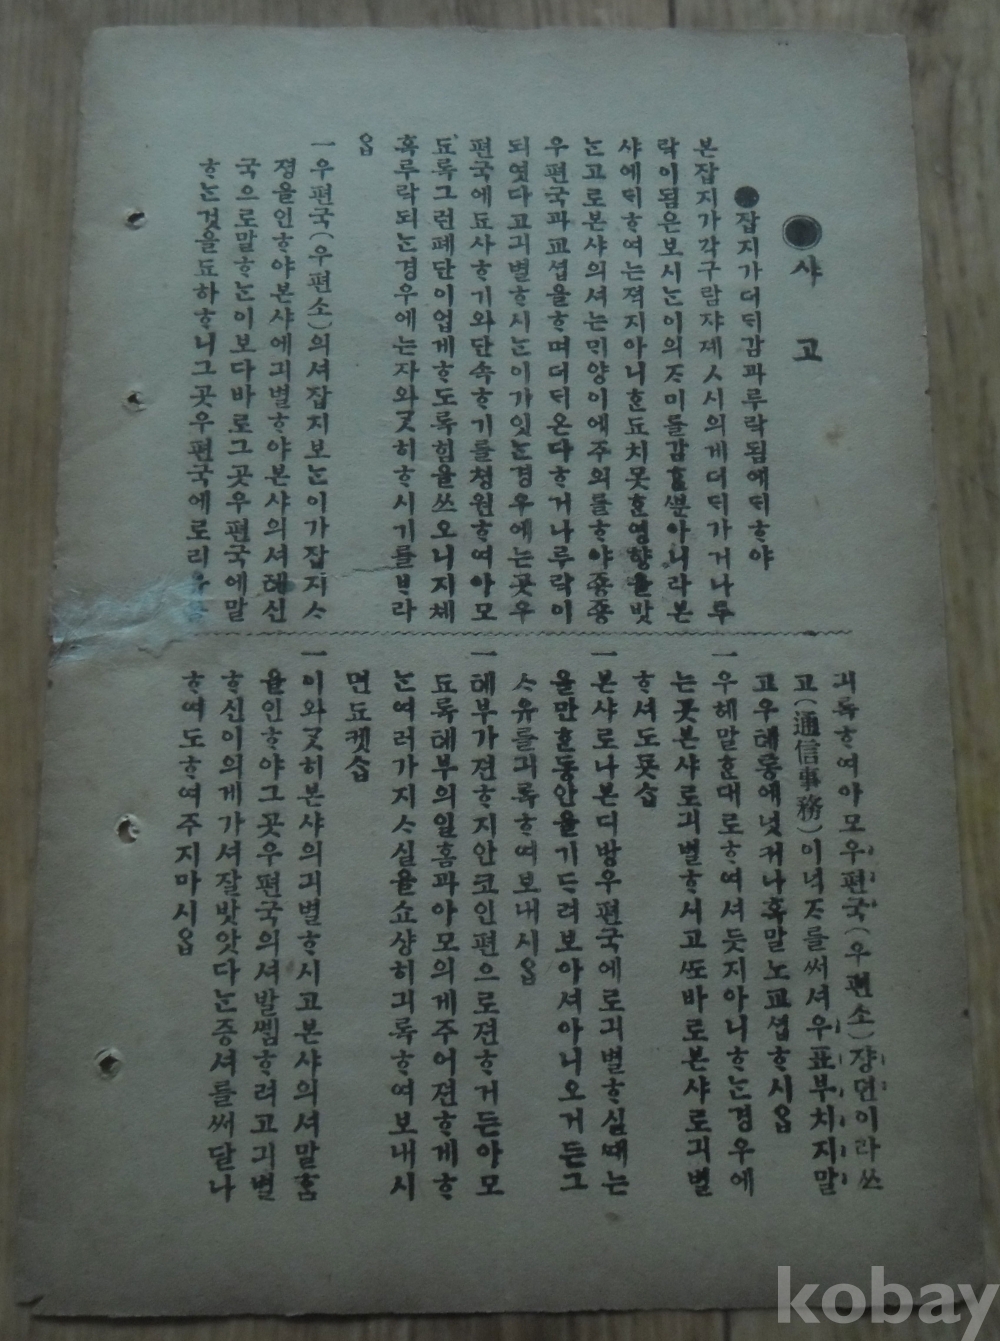 샤고
●잡지가더듸감과루락됨에듸ᄒᆞ야
본잡지가각구람쟈졔人시의게더듸가거나루
락이됨은보시ᄂᆞᆫ이의ᄌᆞ미를감ᄒᆞᆯᄲᅮᆫ아니라본
샤에듸ᄒᆞ여는젹지아니ᄒᆞᆫ됴치못ᄒᆞᆫ영향을밧
ᄂᆞᆫ고로본샤의셔는ᄆᆡ양이에주의를ᄒᆞ야죵죵
우편국과교셥을ᄒᆞ며더듸온다ᄒᆞ거나루락이
되엿다고긔별ᄒᆞ시ᄂᆞᆫ이가잇ᄂᆞᆫ경우에는곳우
편국에됴사ᄒᆞ기와단속ᄒᆞ기를쳥원ᄒᆞ여아모
됴록그런폐단이업게ᄒᆞ도록힘을쓰오니지체
혹루락되ᄂᆞᆫ경우에는자와ᄀᆞᆺ히ᄒᆞ시기를ᄇᆞ라
옵
一우편국(우편소)의셔잡지보ᄂᆞᆫ이가잡지ᄉᆞ
졍을인ᄒᆞ야본샤에긔별ᄒᆞ야본샤의셔톄신
국으로말ᄒᆞᄂᆞᆫ이보다바로그곳우편국에말
ᄒᆞᄂᆞᆫ것을됴하ᄒᆞ니그곳우편국에로리
긔록ᄒᆞ여아모우편국(우편소)쟝뎐이라쓰
고(通信事務)이넉ᄌᆞ를써셔우표부치지말
고우톄통에넛커나혹말노교셥ᄒᆞ시옵
一우헤말ᄒᆞᆫ대로ᄒᆞ여셔듯지아니ᄒᆞᄂᆞᆫ경우에
는곳본샤로긔별ᄒᆞ시고ᄯᅩ바로본샤로긔별
ᄒᆞ셔도됴습
一본샤로나본디방우편국에로긔별ᄒᆞ실ᄯᅢ는
올만ᄒᆞᆫ동안을기ᄃᆞ려보아셔아니오거든그
ᄉᆞ유를긔록ᄒᆞ여보내시옵
一톄부가젼ᄒᆞ지안코인편으로젼ᄒᆞ거든아모
됴록톄부의일홈과아모의게주어젼ᄒᆞ게ᄒᆞ
ᄂᆞᆫ여러가지ᄉᆞ실을쇼샹히긔록ᄒᆞ여보내시
면됴켓습
一이와ᄀᆞᆺ히본샤의긔별ᄒᆞ시고본샤의셔말ᄒᆞᆷ
을인ᄒᆞ야그곳우편국의셔발ᄲᅨᆷᄒᆞ려고긔별
ᄒᆞ신이의게가셔잘밧앗다ᄂᆞᆫ증셔를써달나
ᄒᆞ여도ᄒᆞ여주지마시옵
kobay